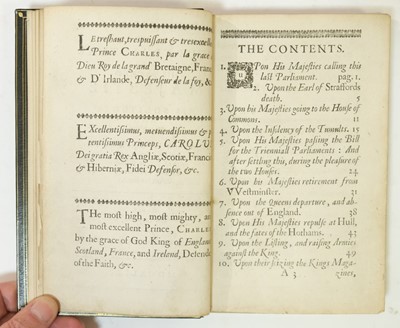 Le treshaut, trespuissant & tresexcelle
Prince CHARLES, par la grace
Dieu Roy de la grand' Bretaigne, Fran
& D'Irlande, Defenseur de la foy, &c
Excellentissimus, metuendissimus & p
tentissimus Princeps, CAROLU
Dei gratia Rex Angliæ, Scotiæ, Franc
& Hiberniæ, Fidei Defensor, &c.
The most high, most mighty, an
most excellent Prince, CHARLES
by the grace of God King of England
Scotland, France, and Ireland, Defende
of the Faith, &c.
THE CONTENTS.
1. UPon His Majesties calling this
last Parliament. pag. 1.
2. Upon the Earl of Straffords
death. 5
3. Upon his Majesties going to the House of
Commons. 11
4. Upon the Insolency of the Tumults. 15
5. Upon His Majesties passing the Bill
for the Trienniall Parliaments: And
after settling this, during the pleasure of
the two Houses. 24
6. Upon his Majesties retirement from
Westminster. 31
7. Upon the Queens departure, and ab-
sence out of England. 38
8. Upon His Majesties repulse at Hull,
and the fates of the Hothams. 43
9. Upon the Listing, and raising Armies
against the King. 49
10. Upon their seizing the Kings Maga-
A 3 zines,